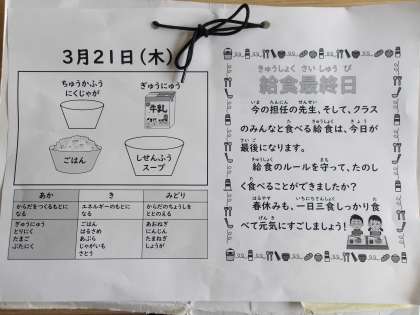 3月21日(木)
ちゅうかふう
にくじゃが
ぎゅうにゅう
牛乳
ごはん
しせんふう
スープ
あか
き
みどり
からだをつくるもとに
なる
エネルギーのもとに
なる
からだのちょうしを
ととのえる
ぎゅうにゅう
とりにく
たまご
ぶたにく
ごはん
はるさめ
あぶら
じゃがいも
さとう
あおねぎ
にんじん
たまねぎ
しょうが
きゅうしょく さい しゅう び
給食最終日
いま たんにん せんせい
今の担任の先生、そして、クラス
きゅうしょく きょう
のみんなと食べる給食は、今日が
さいご
最後になります。
きゅうしょく まも
給食のルールを守って、たのし
た
く食べることができましたか?
はるやす いちにちさんしょく た
春休みも、一日三食しっかり食
げんき
べて元気にすごしましょう!